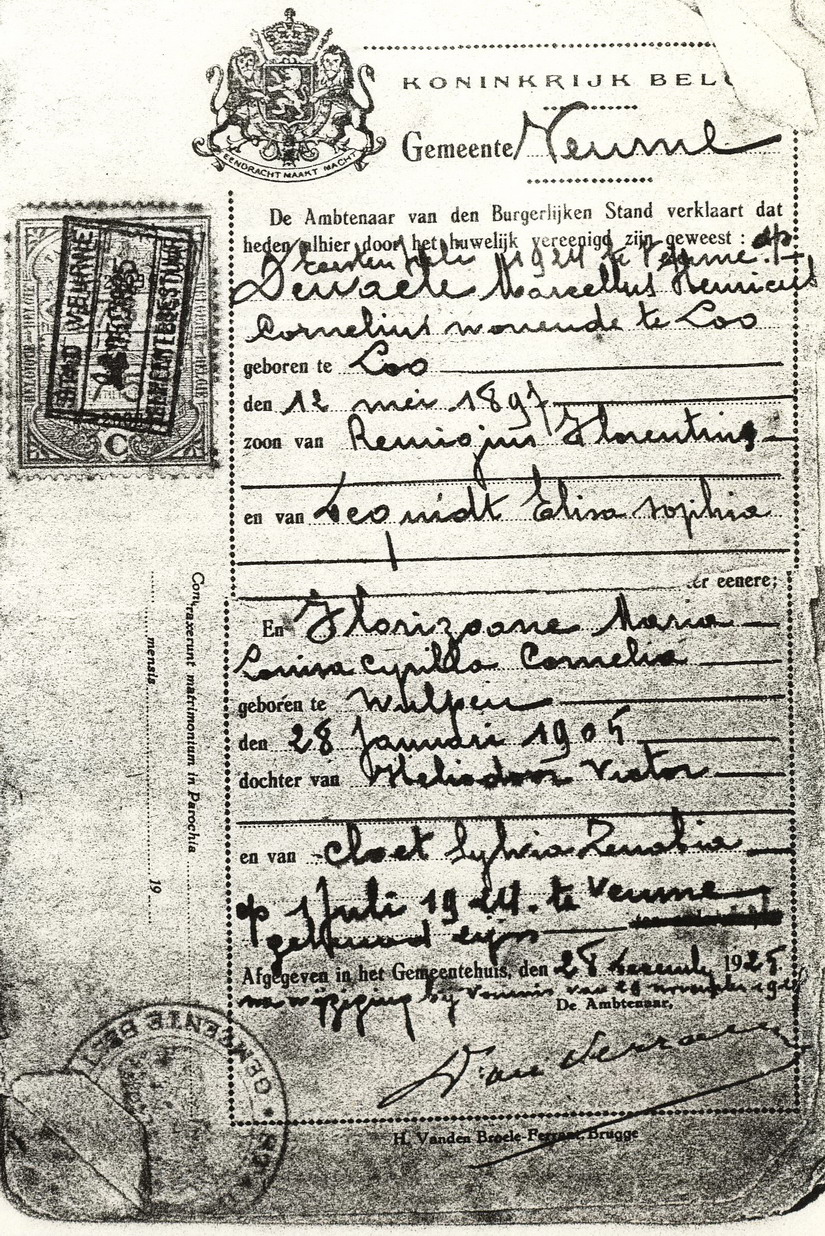 KONINKRIJK BELG
EENDRACHT MAAKT MACHT
Gemeente Veurne
De Ambtenaar van den Burgerlijken Stand verklaart dat
heden alhier door het huwelijk vereenigd zijn geweest : op
Eersten Juli 1924 te Veurne
Dewaele Marcellus Henricus
Cornelius wonende te Loo
geboren te Loo
den 12 mei 1897
zoon van Remigius Florentius
en van Elisa Sophia
er eenere;
En Florizoone Maria
Louisa Cyrilla Cornelia
geboren te Wulpen
den 28 Januari 1905
dochter van Heliodoor Victor
en van Cloet Sylvia Zenobia
op 1 Juli 1924 te Veurne
gehuwd zijn
Afgegeven in het Gemeentehuis, den 28 december 1925
na wijziging bij vonnis van november
De Ambtenaar,
H. Vanden Broele-Ferrant, Brugge
STAD VEURNE
GEMEENTEBESTUUR
C
Contraxerunt matrimonium in Parochia
mensis 19
GEMEENTE BEST